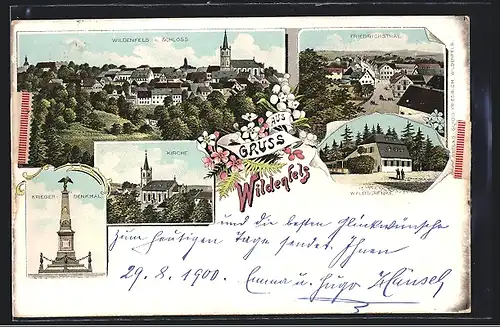 WILDENFELS u. SCHLOSS
FRIEDRICHSTHAL
KRIEGER-
DENKMAL
KIRCHE
GRUSS
AUS
Wildenfels
und die besten Glückwünsche
zum heutigen Tage senden Ihnen
29.8.1900. Emma u. Hugo Hänsel